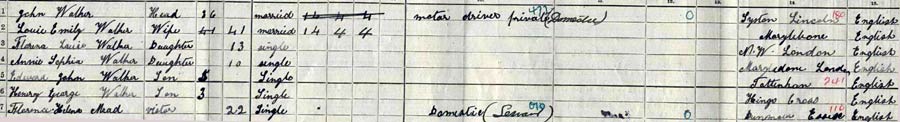 1 John Walker Head 36 married 14 4 4 motor driver private (Domestic) 0 Syston Lincoln 180 English
2 Louie Emily Walker Wife 41 41 married 14 4 4 Marylebone English
3 Florence Louie Walker Daughter 13 single N.W. London English
4 Annie Sophia Walker Daughter 10 single Marylebone London English
5 Edward John Walker Son 5 Single Tottenham 241 English
6 Henry George Walker Son 3 Single Kings Cross English
7 Florence Helena Mead visitor 22 Single Domestic (Servant) 0 Dunmow Essex 110 English